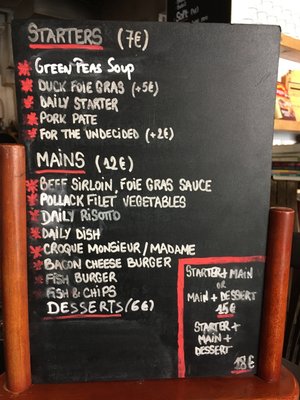 STARTERS (7€)
GREEN PEAS SOUP
DUCK FOIE GRAS (+5€)
DAILY STARTER
PORK PATE
FOR THE UNDECIDED (+2€)
MAINS (12€)
BEEF SIRLOIN, FOIE GRAS SAUCE
POLLACK FILET VEGETABLES
DAILY RISOTTO
DAILY DISH
CROQUE MONSIEUR/MADAME
BACON CHEESE BURGER
FISH BURGER
FISH & CHIPS
DESSERTS (6€)
STARTER + MAIN
OR
MAIN + DESSERT
15€
STARTER +
MAIN +
DESSERT
18€